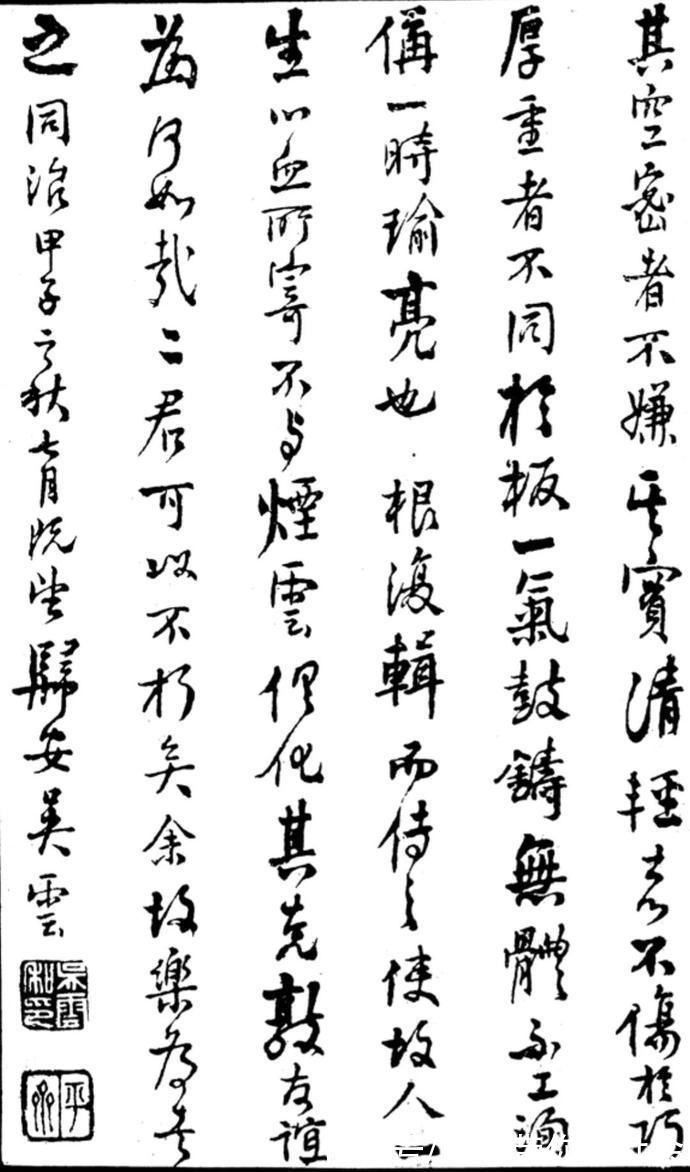 其空密者不嫌其實清輕者不傷於巧
厚重者不同於板一氣鼓鑄無體不工詢
偁一時瑜亮也根復輯而傳之使故人一
生心血所寄不与煙雲俱化其克敦友誼
為何如哉二君可以不朽矣余故樂為書
之同治甲子之秋七月既望歸安吴雲
吳雲私印
平齋